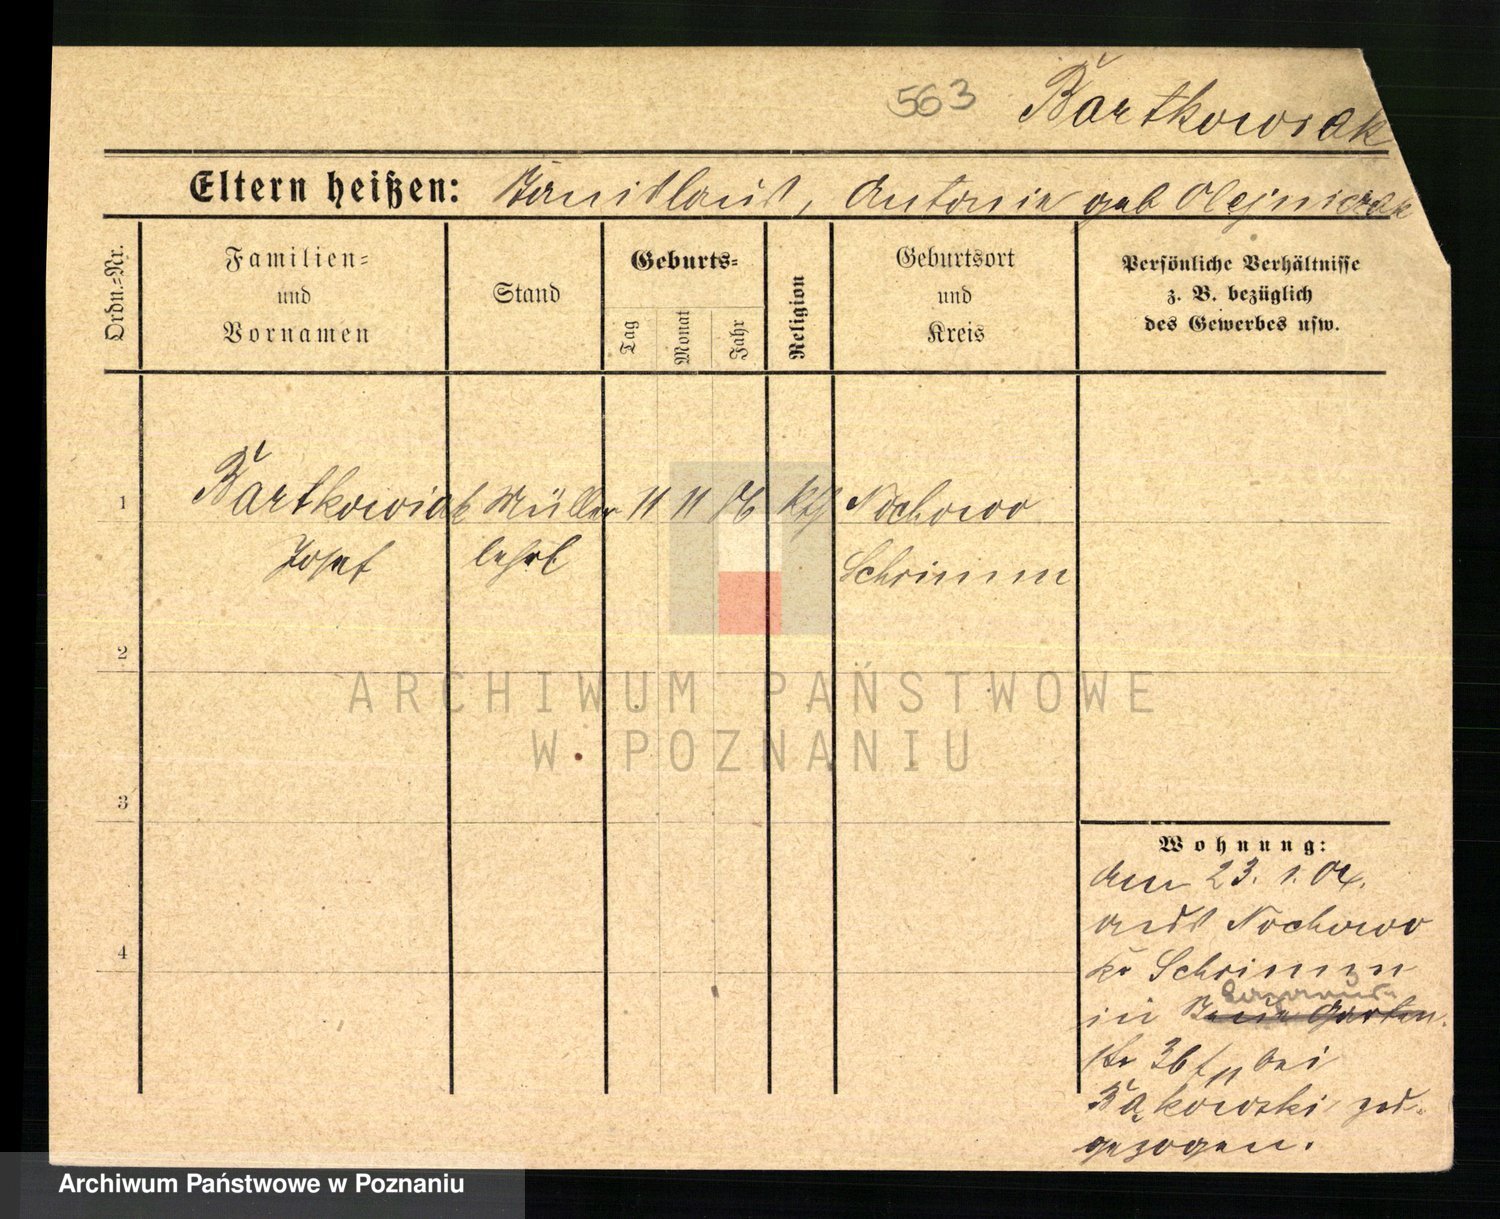 563 Bartkowiak
Eltern heißen: Stanislaus, Antonie geb Olejniczak
Ordn.-Nr.
Familien-
und
Vornamen
Stand
Geburts-
Tag
Monat
Jahr
Religion
Geburtsort
und
Kreis
Persönliche Verhältnisse
z. B. bezüglich
des Gewerbes usw.
1 Bartkowiak Müller 11 11 kth Nochowo
Josef lehrl Schrimm
2
3
4
Wohnung:
Am 23. 1. 04.
aus Nochowo
kr Schrimm
Lazarus
in Garten
str 36 bei
Bąkowski zu-
gezogen.
ARCHIWUM PAŃSTWOWE
W POZNANIU
Archiwum Państwowe w Poznaniu